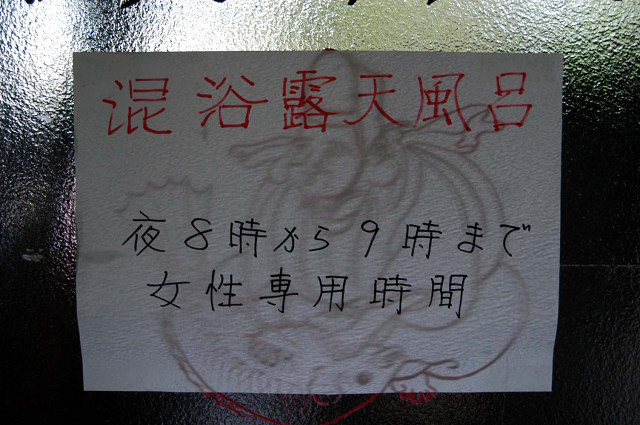 混浴露天風呂
夜8時から9時まで
女性専用時間